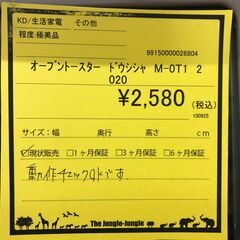 KD/生活家電 その他
程度:極美品
99150000026804
オーブントースター ドウシシャ M-OT1 2
020
¥2,580(税込)
100925
サイズ:幅 奥行 高さ cm
☑現状販売 □1ヶ月保証 □3ヶ月保証 □6ヶ月保証
動作チェックOKです。
The Jungle-Jungle